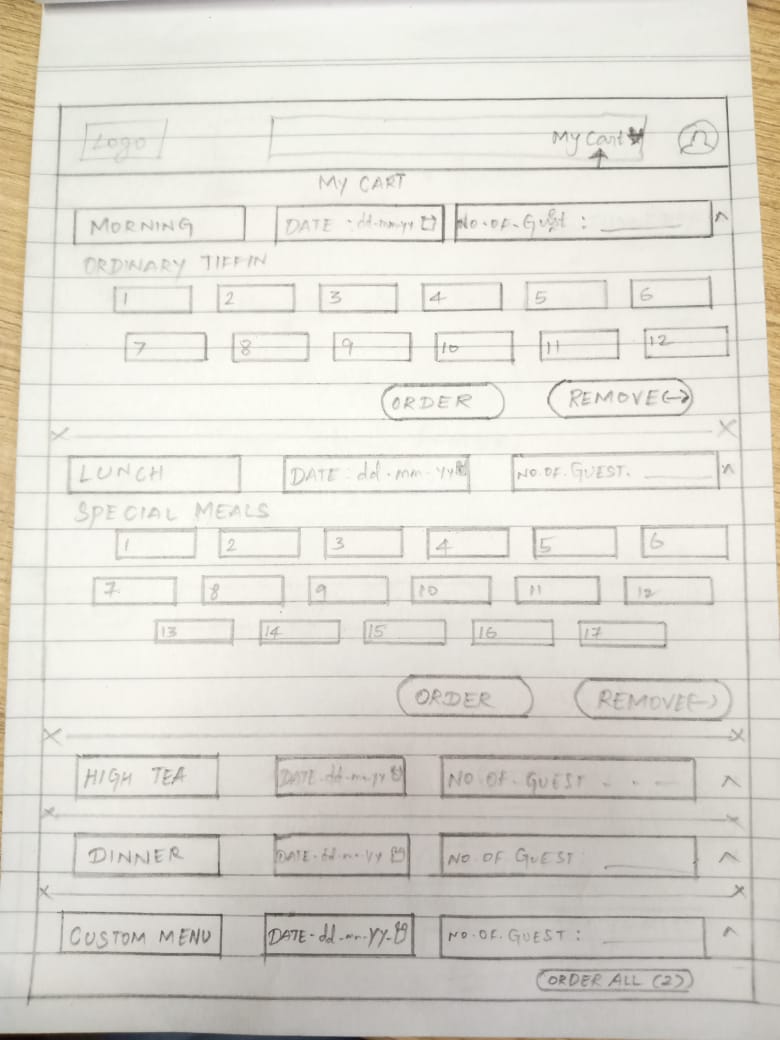 Logo My Cart
MY CART
MORNING DATE : dd-mm-yy NO.OF.Guest : ______
ORDINARY TIFFIN
1 2 3 4 5 6
7 8 9 10 11 12
ORDER REMOVE(-)
LUNCH DATE : dd-mm-yy NO.OF.GUEST. ______
SPECIAL MEALS
1 2 3 4 5 6
7 8 9 10 11 12
13 14 15 16 17
ORDER REMOVE(-)
HIGH TEA DATE-dd-mm-yy NO.OF.GUEST - - -
DINNER DATE-dd-mm-yy NO.OF GUEST ______
CUSTOM MENU DATE-dd-mm-yy NO.OF.GUEST : ______
ORDER ALL (2)